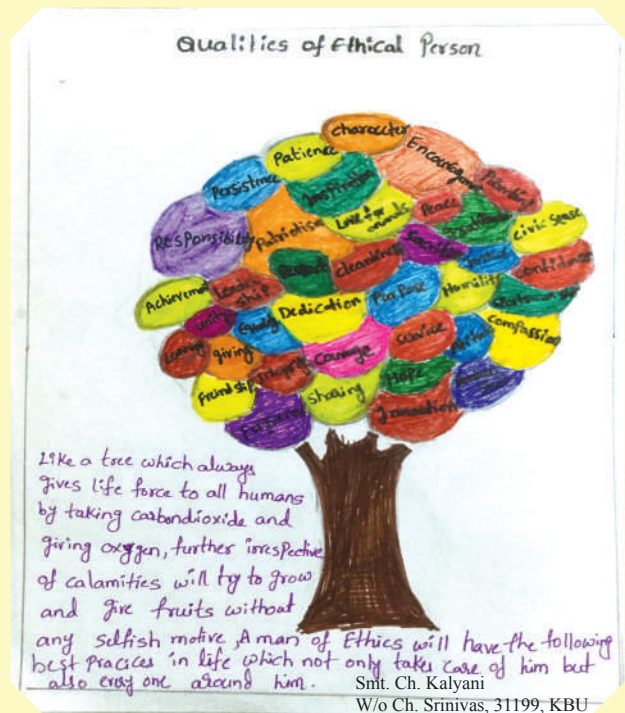 Qualities of Ethical Person
character
Patience
Encouragement
Persistence
Inspiration
Love for animals
Peace
Responsibility
Patriotism
Sacrifice
civic sense
Respect
cleanliness
confidence
Achievement
Leadership
Unity
Equality
Dedication
Purpose
Humility
Sportsmanship
compassion
Learning
giving
Integrity
Courage
Service
Friendship
Sharing
Hope
Innovation
Like a tree which always
gives life force to all humans
by taking carbondioxide and
giving oxygen, further irrespective
of calamities will try to grow
and give fruits without
any selfish motive, A man of Ethics will have the following
best Pracices in life which not only takes care of him but
also every one around him.
Smt. Ch. Kalyani
W/o Ch. Srinivas, 31199, KBU